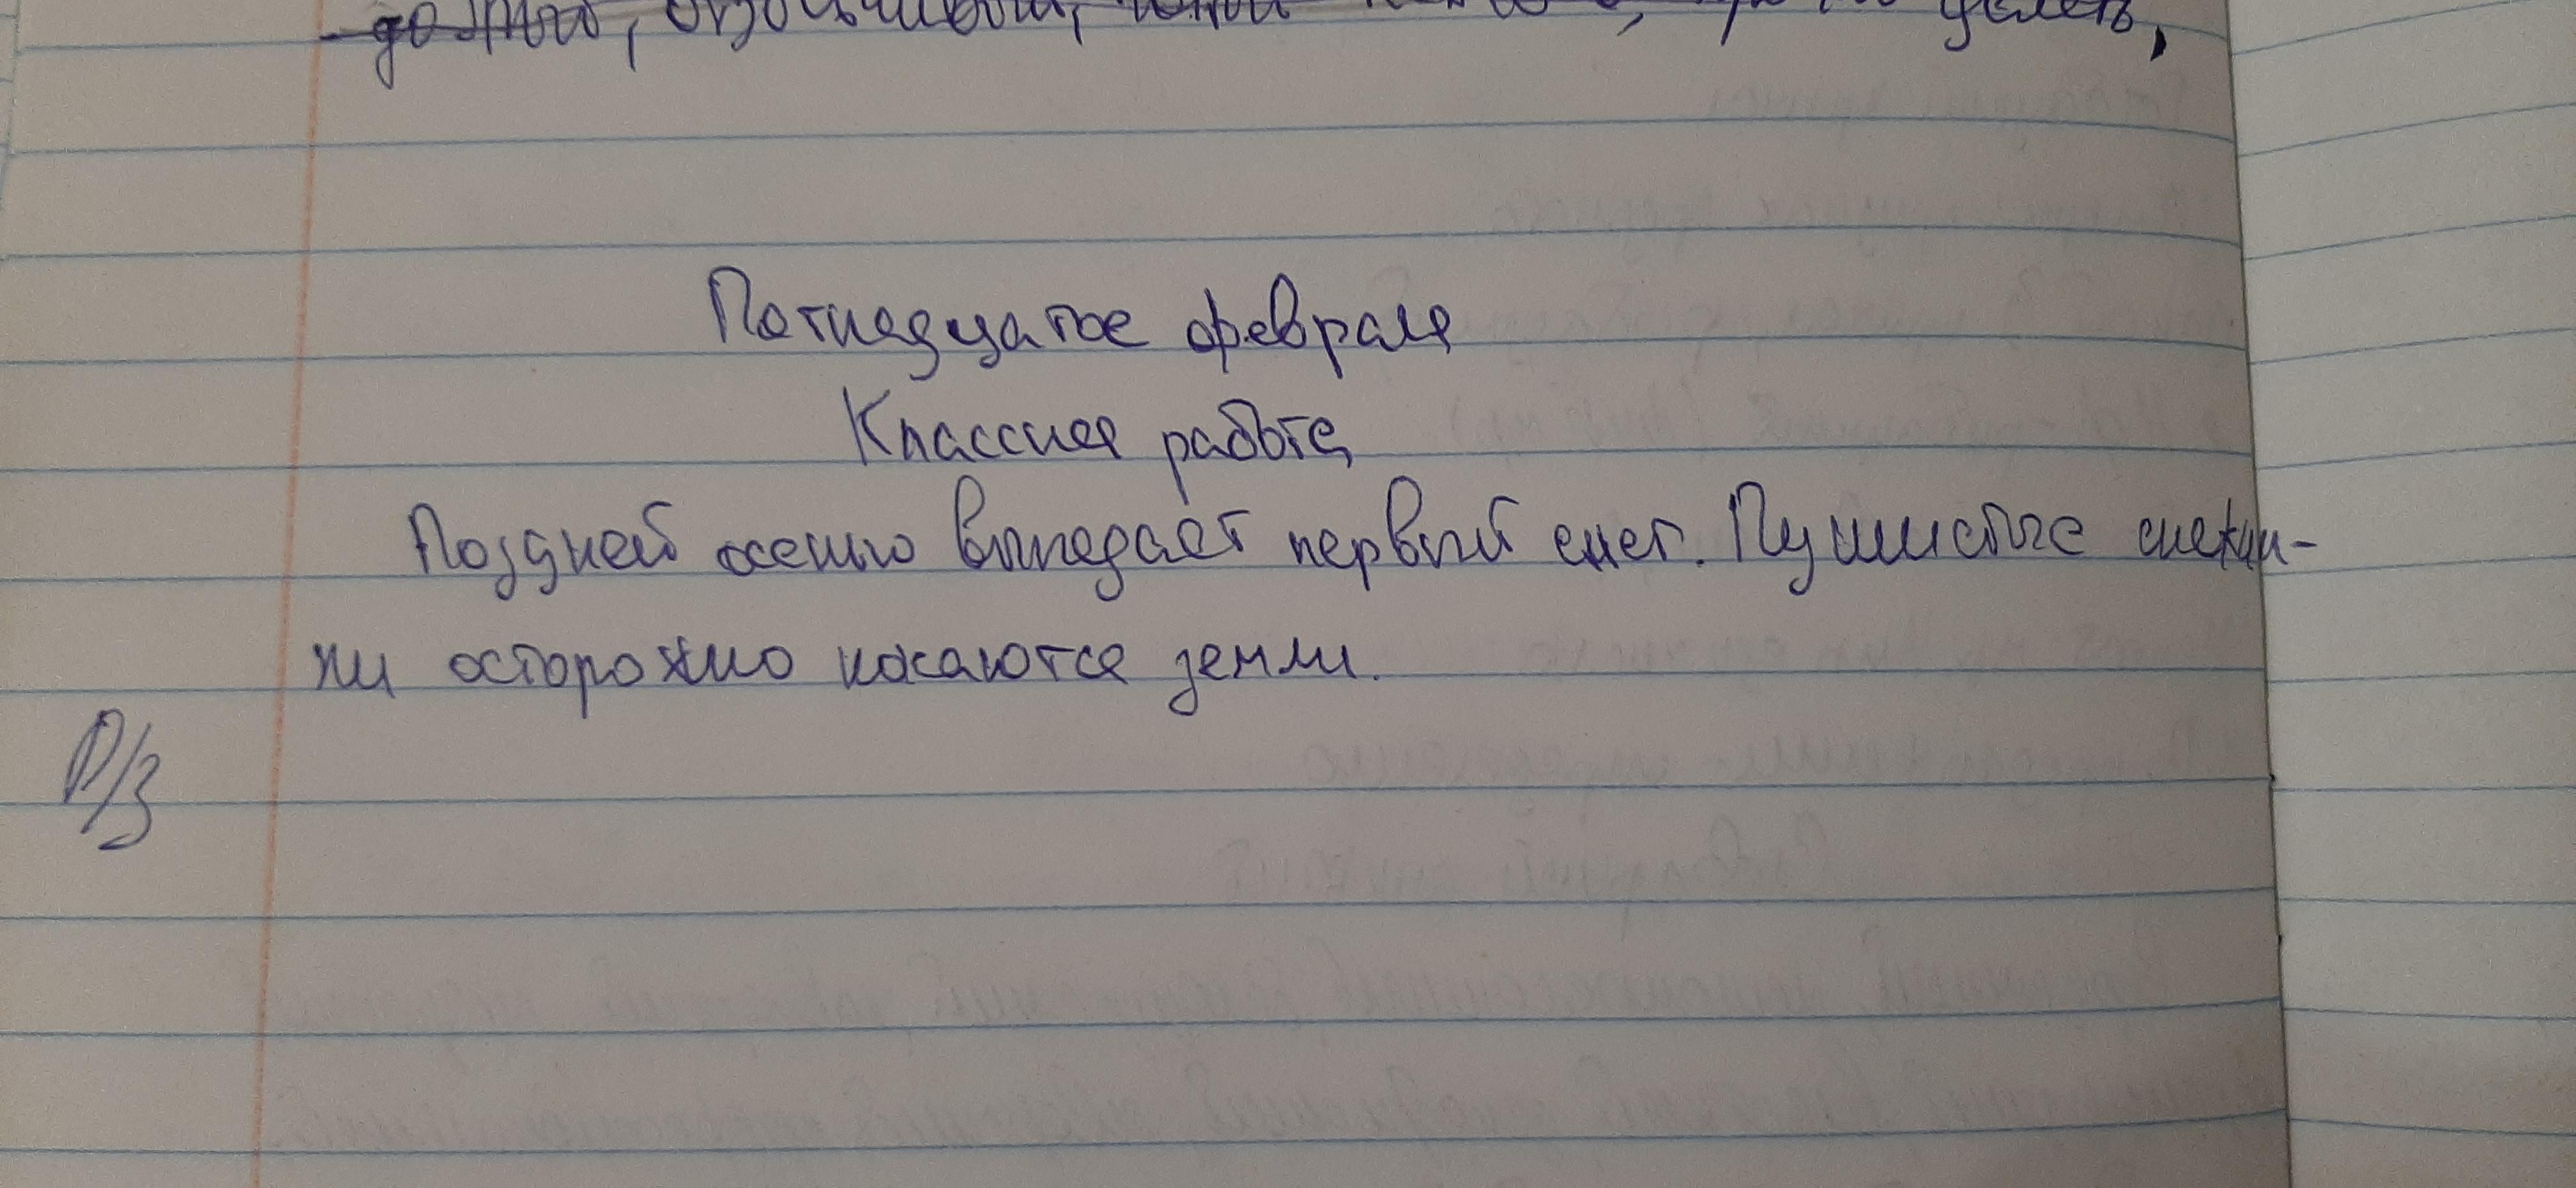 до того,
Пятнадцатое февраля
Классная работа
Поздней осенью выпадает первый снег. Пушистые снежин-
ки осторожно касаются земли.
Р/З